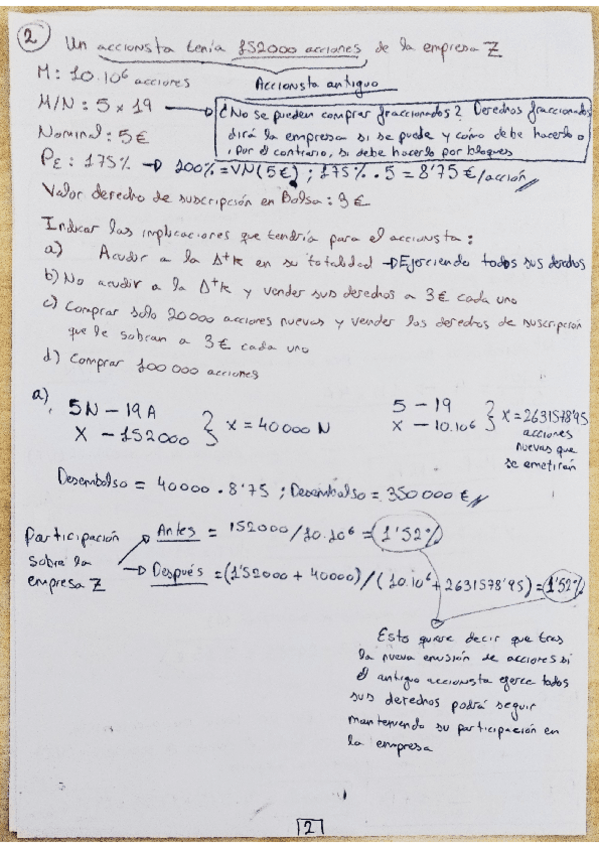 2 Un accionista tenía 152000 acciones de la empresa Z
Accionista antiguo
M: 10.10⁶ acciones
M/N: 5 x 19 → ¿No se pueden comprar fraccionados? Derechos fraccionados
dirá la empresa si se puede y cómo debe hacerlo o
, por el contrario, si debe hacerlo por bloques
Nominal: 5€
PE: 175% → 100% = VN (5€) ; 175% . 5 = 8'75 €/acción
Valor derecho de suscripción en Bolsa: 3€
Indicar las implicaciones que tendría para el accionista:
a) Acudir a la Δ⁺K en su totalidad → Ejerciendo todos sus derechos
b) No acudir a la Δ⁺K y vender sus derechos a 3€ cada uno
c) Comprar solo 20000 acciones nuevas y vender los derechos de suscripción
que le sobran a 3€ cada uno
d) Comprar 100000 acciones
a) 5N — 19A
X — 152000 } X = 40000 N
5 — 19
X — 10.10⁶ } X = 2631578'95
acciones
nuevas que
se emetirán
Desembolso = 40000 . 8'75 ; Desembolso = 350000 €
Participación
sobre la
empresa Z
Antes = 152000/10.10⁶ = 1'52%
Después = (152000 + 40000) / (10.10⁶ + 2631578'95) = 1'52%
Esto quiere decir que tras
la nueva emisión de acciones si
el antiguo accionista ejerce todos
sus derechos podrá seguir
manteniendo su participación en
la empresa
2